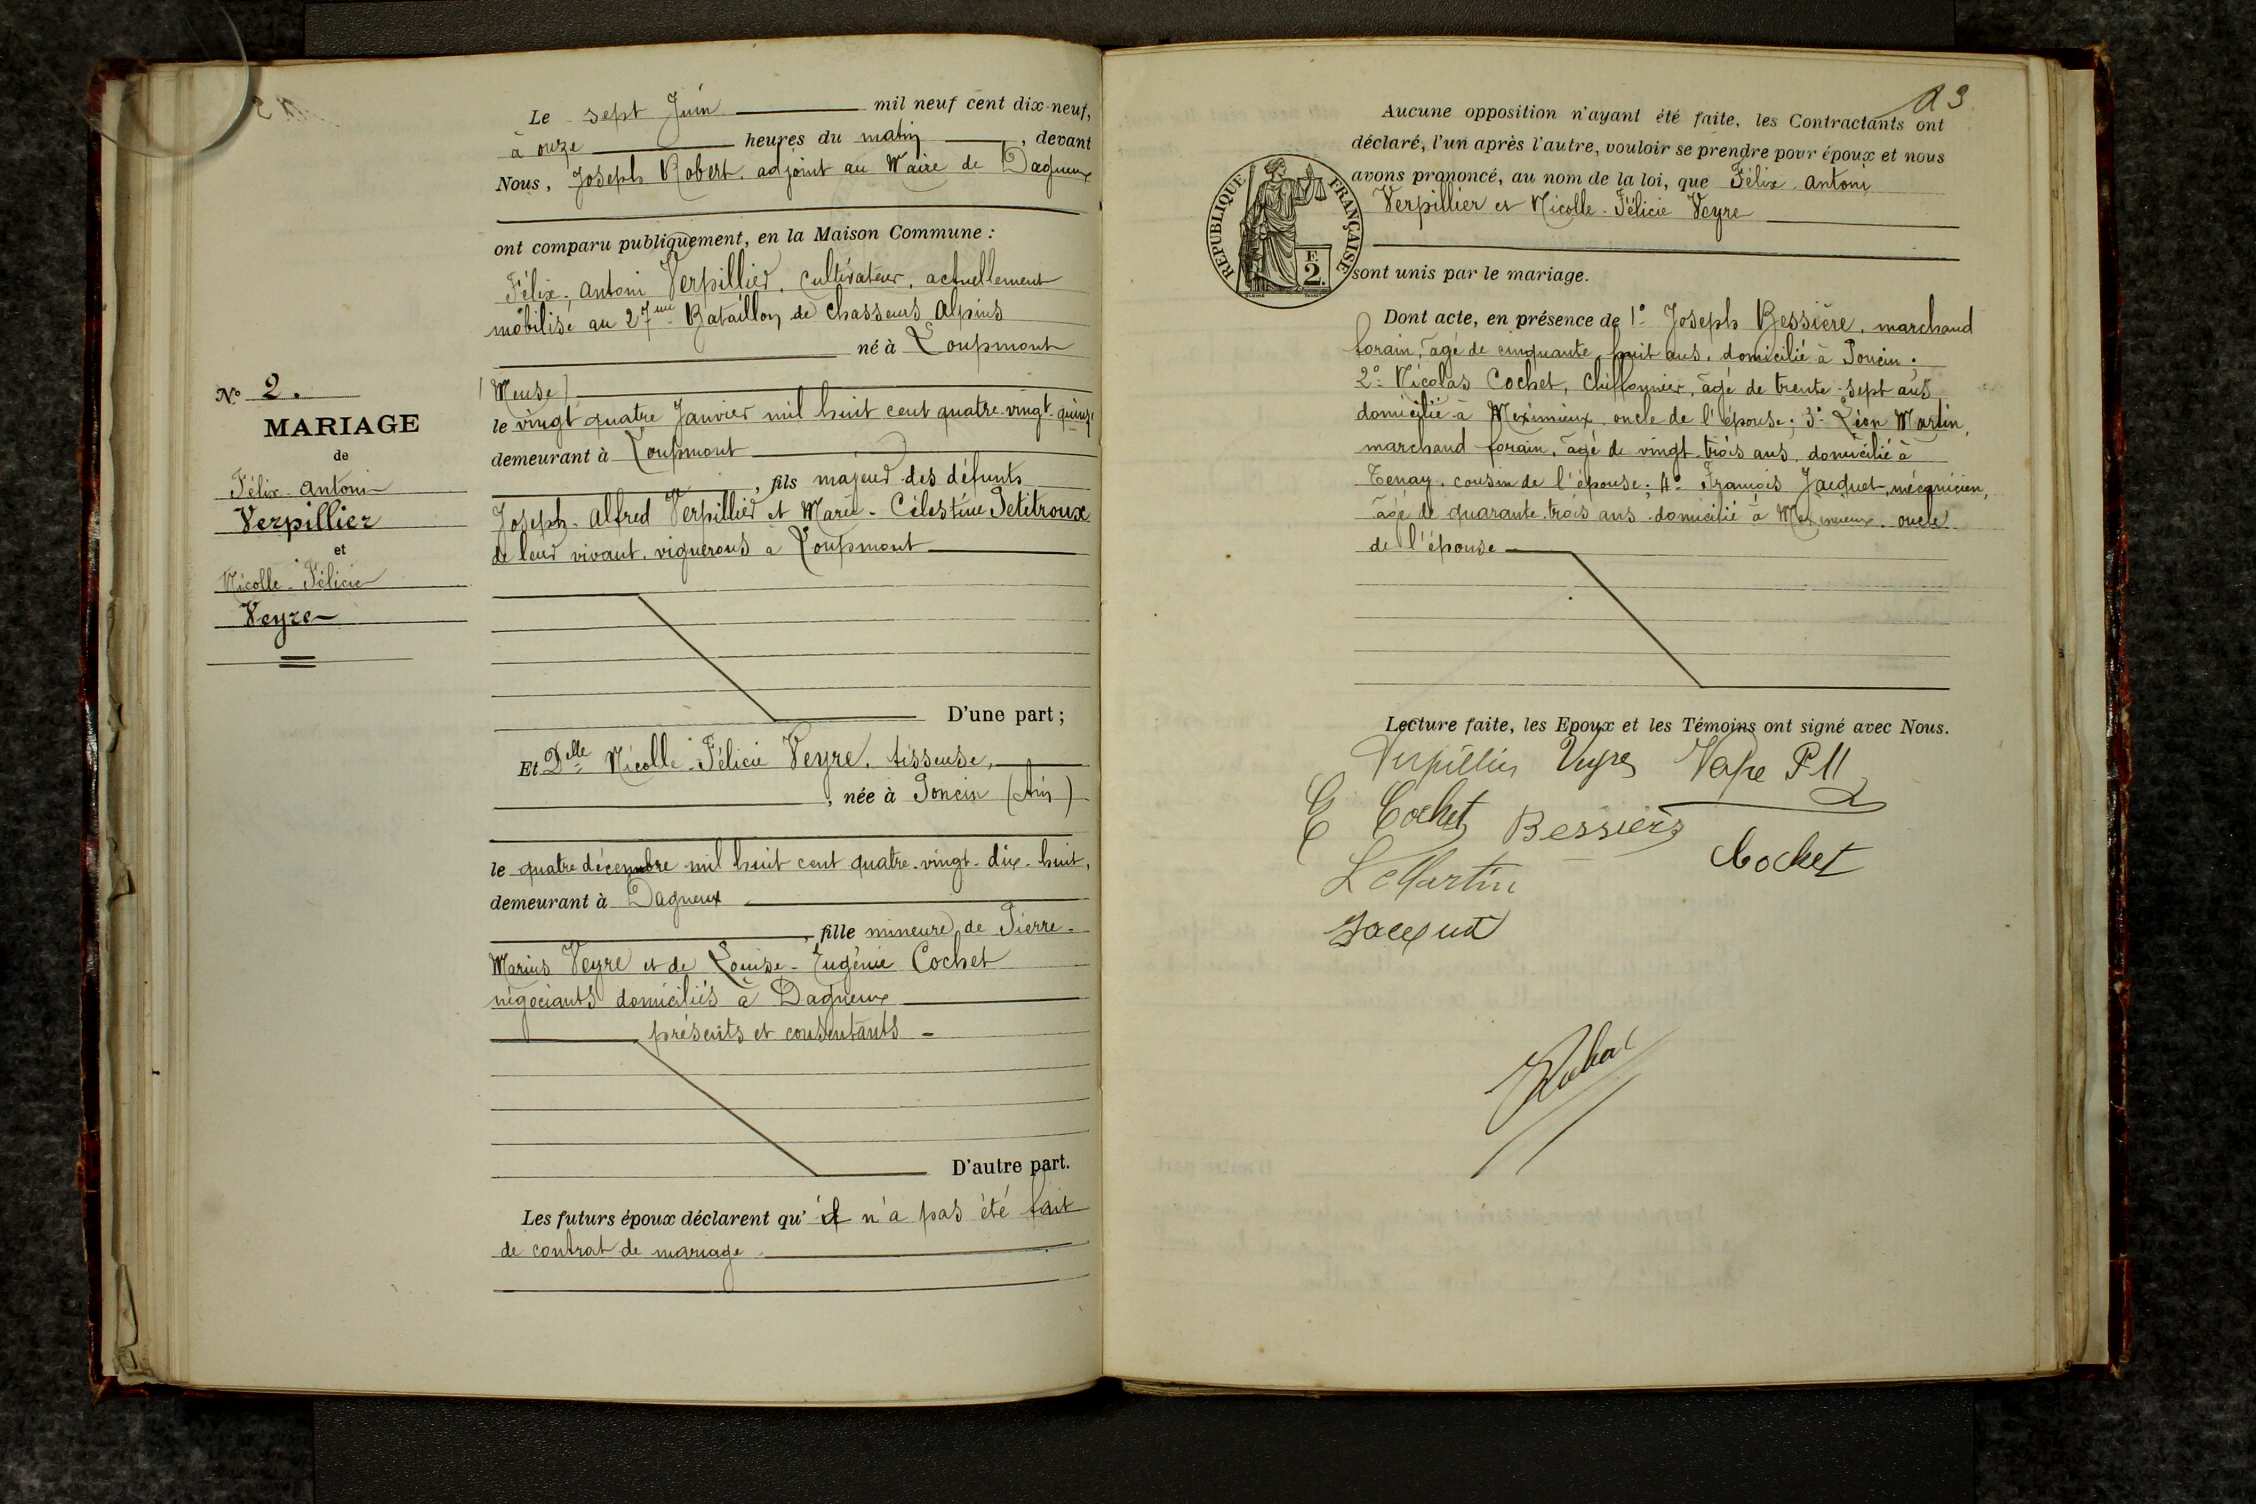 Le sept Juin mil neuf cent dix-neuf,
à onze heures du matin, devant
Nous, Joseph Robert, adjoint au Maire de Dagneux
ont comparu publiquement, en la Maison Commune :
Félix-Antoni Verpillier, cultivateur, actuellement
mobilisé au 27me Bataillon de Chasseurs Alpins
né à Loupmont
(Meuse)
le vingt quatre Janvier mil huit cent quatre-vingt-quinze
demeurant à Loupmont
, fils majeur des défunts
Joseph-Alfred Verpillier et Marie-Célestine Petitroux
de leur vivant, vignerons à Loupmont
D'une part ;
Et Delle Nicolle-Félicie Veyre, tisseuse,
, née à Poncin (Ain)
le quatre décembre mil huit cent quatre-vingt-dix-huit,
demeurant à Dagneux
, fille mineure de Pierre-
Marius Veyre et de Louise-Eugénie Cochet
négociants domiciliés à Dagneux
présents et consentants -
D'autre part.
Les futurs époux déclarent qu'il n'a pas été fait
de contrat de mariage
No 2.
MARIAGE
de
Félix-Antoni
Verpillier
et
Nicolle-Félicie
Veyre
Aucune opposition n'ayant été faite, les Contractants ont
déclaré, l'un après l'autre, vouloir se prendre pour époux et nous
avons prononcé, au nom de la loi, que Félix-Antoni
Verpillier et Nicolle-Félicie Veyre
sont unis par le mariage.
RÉPUBLIQUE FRANÇAISE
F.
2.
Dont acte, en présence de 1° Joseph Bessière, marchand
forain, âgé de cinquante huit ans, domicilié à Poncin ;
2° Nicolas Cochet, Chiffonnier, âgé de trente-sept ans
domicilié à Meximieux oncle de l'épouse ; 3° Léon Martin,
marchand forain, âgé de vingt-trois ans domicilié à
Tenay, cousin de l'épouse ; 4° François Jacquet, mécanicien,
âgé de quarante trois ans domicilié à Meximieux, oncle
de l'épouse
Lecture faite, les Epoux et les Témoins ont signé avec Nous.
Verpillier Veyre Veyre P M
E Cochet Bessière Cochet
L Martin
Jacquet